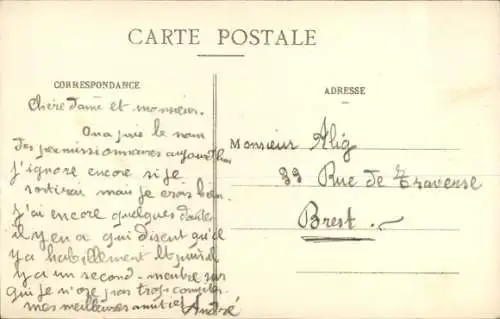 CARTE POSTALE
CORRESPONDANCE
Chère dame et monsieur.
On a pris le nom
des permissionnaires aujourd'hui
j'ignore encore si je
sortirai mais je crois bien.
j'ai encore quelques doutes
il y en a qui disent qu'il
y a habillement et puis il
y a un second-meutre sur
qui je n'ose pas trop compter
mes meilleures amitiés André
ADRESSE
Monsieur Alig
33 Rue de Traverse
Brest.